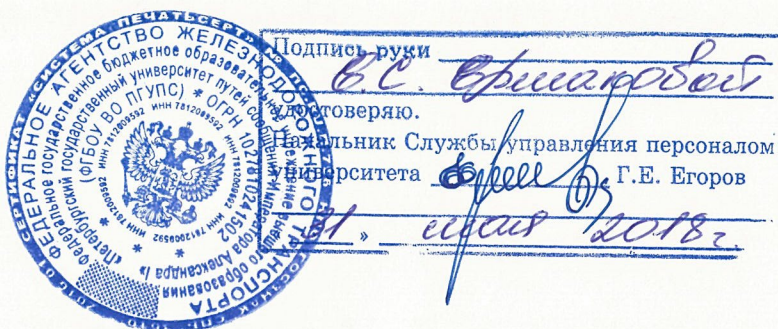 Подпись руки
В.С. Ермаковой
удостоверяю.
Начальник Службы управления персоналом
университета Г.Е. Егоров
31 » мая 2018г.
ФЕДЕРАЛЬНОЕ АГЕНТСТВО ЖЕЛЕЗНОДОРОЖНОГО ТРАНСПОРТА
Федеральное государственное бюджетное образовательное учреждение высшего образования
«Петербургский государственный университет путей сообщения Императора Александра I»
(ФГБОУ ВО ПГУПС) * ОГРН 1027810241502
ИНН 7812009592 ИНН 7812009592 ИНН 7812009592